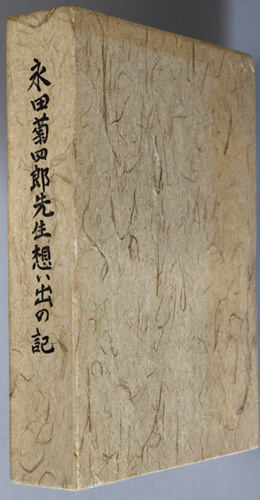 永田菊四郎先生想い出の記